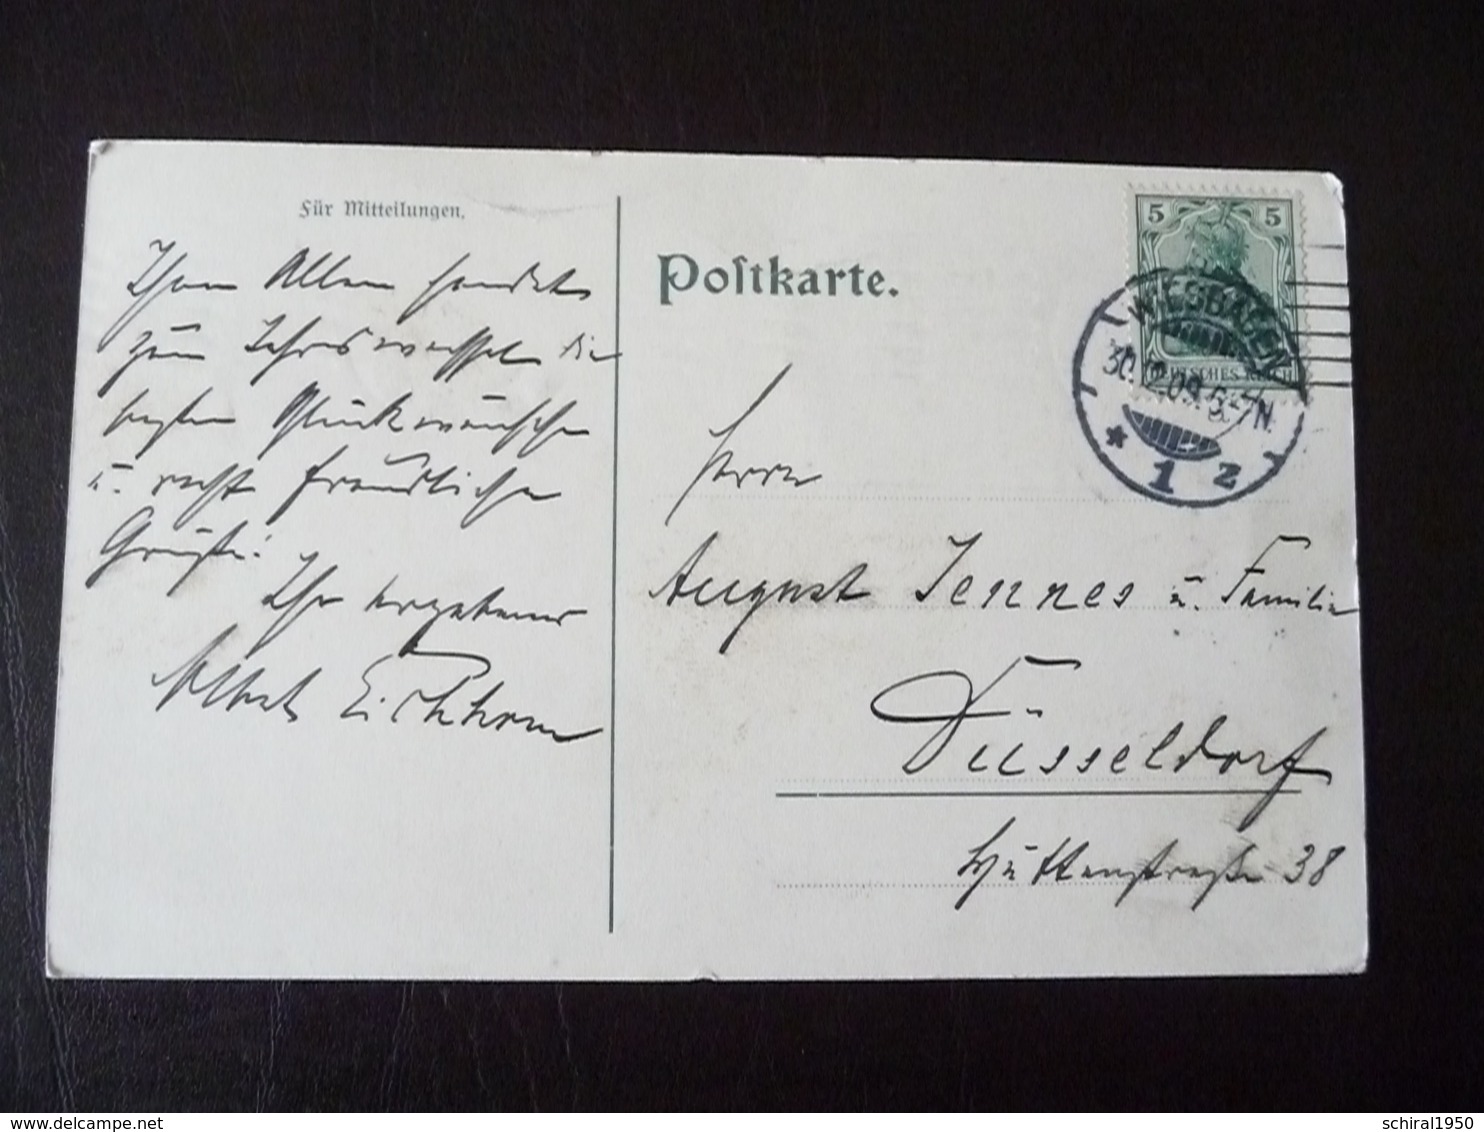 Für Mitteilungen.
Ihnen Allen sendet
zum Jahreswechsel die
besten Glückwünsche
u. recht freundliche
Grüße.
Ihr ergebener
Albert Eichhorn
Postkarte.
5 5
DEUTSCHES REICH
WIESBADEN
30.12.09. 6-7N.
* 1 z
Herrn
August Jennes u. Familie
Düsseldorf
Hüttenstraße 38
schiral1950